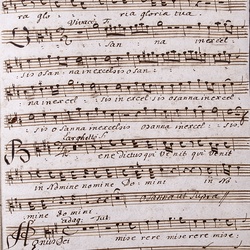 ra glo ria gloria tua
Vivace
san na inexcel
sis osan na inexcelsis osan
na inexcel sis in excel sis osanna inexcel
sis o sanna inexcelsis osanna inexcel sis
Larghetto
Bene dictus qui ve nit qui venit
in Nomine nomine Do mini in No
Osanna ut Supra
mine do mini
Adag. Tut.
Agnus Dei mise rere mise rere mise